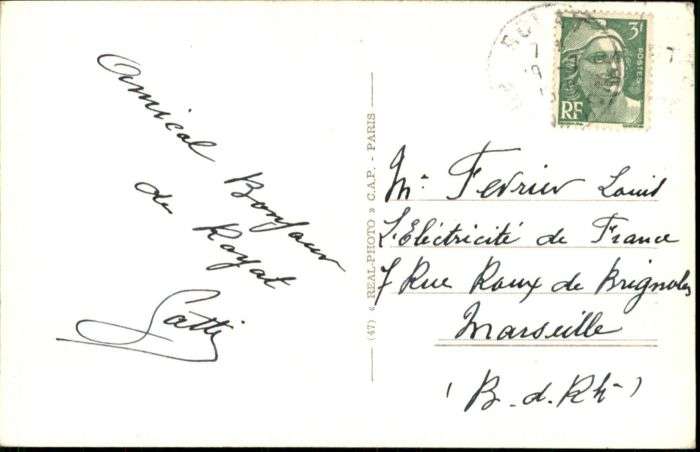 Amical Bonjour
de Royat
(47) « REAL-PHOTO » C.A.P. - PARIS
3F
POSTES
RF
7
9
Mr. Fevrier Louis
L'Electricité de France
7 Rue Roux de Brignoles
Marseille
(B. d. Rh-)